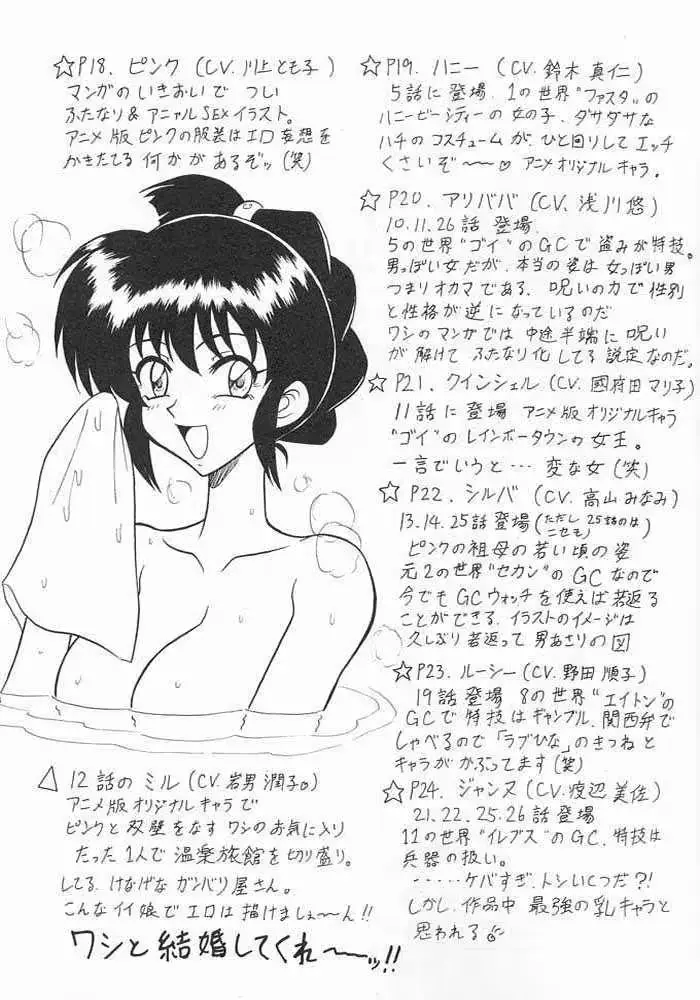 ☆P18. ピンク (CV. 川上とも子)
マンガのいきおいで つい
ふたなり&アニャルSEXイラスト。
アニメ版ピンクの服装はエロ妄想を
かきたてる何かがあるぞッ(笑)
☆P19. ハニー (CV. 鈴木真仁)
5話に登場. 1の世界"ファスタ"の
ハニービーシティーの女の子. ダサダサな
ハチのコスチュームが、ひと回りしてエッチ
くさいぞ〜〜♡ アニメオリジナルキャラ。
☆P20. アリババ (CV. 浅川悠)
10.11.26話 登場.
5の世界"ゴイ"のGCで盗みが特技。
男っぽい女だが、本当の姿は女っぽい男
つまりオカマである. 呪いの力で性別
と性格が逆になっているのだ
ワシのマンガでは中途半端に呪い
が解けてふたなり化してる設定なのだ。
☆P21. クインシェル (CV. 國府田マリ子)
11話に登場 アニメ版オリジナルキャラ
"ゴイ"のレインボータウンの女王。
一言でいうと… 変な女(笑)
☆P22. シルバ (CV. 高山みなみ)
13.14.25話登場(ただし 25話のは
ニセモノ)
ピンクの祖母の若い頃の姿
元2の世界"セカン"のGCなので
今でもGCウォッチを使えば若返る
ことができる. イラストのイメージは
久しぶり若返って男あさりの図
☆P23. ルーシー (CV. 野田順子)
19話登場 8の世界"エイトン"の
GCで特技はギャンブル. 関西弁で
しゃべるので「ラブひな」のきつねと
キャラがかぶってます(笑)
☆P24. ジャンヌ (CV. 渡辺美佐)
21.22.25.26話登場
11の世界"イレブス"のGC. 特技は
兵器の扱い。
‥‥‥ケバすぎ. トシいくつだ?!
しかし. 作品中 最強の乳キャラと
思われる
△12話のミル (CV. 岩男潤子。)
アニメ版オリジナルキャラで
ピンクと双璧をなすワシのお気に入り
たった1人で温楽旅館を切り盛り。
してる. けなげなガンバリ屋さん。
こんなイイ娘でエロは描けましぇ〜ん!!
ワシと結婚してくれ〜〜ッ!!